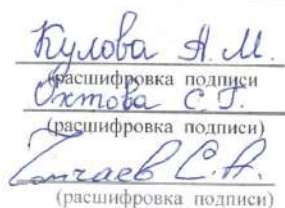 Кулова А.М.
(расшифровка подписи
Охтова С.Г.
(расшифровка подписи)
С.А.
(расшифровка подписи)